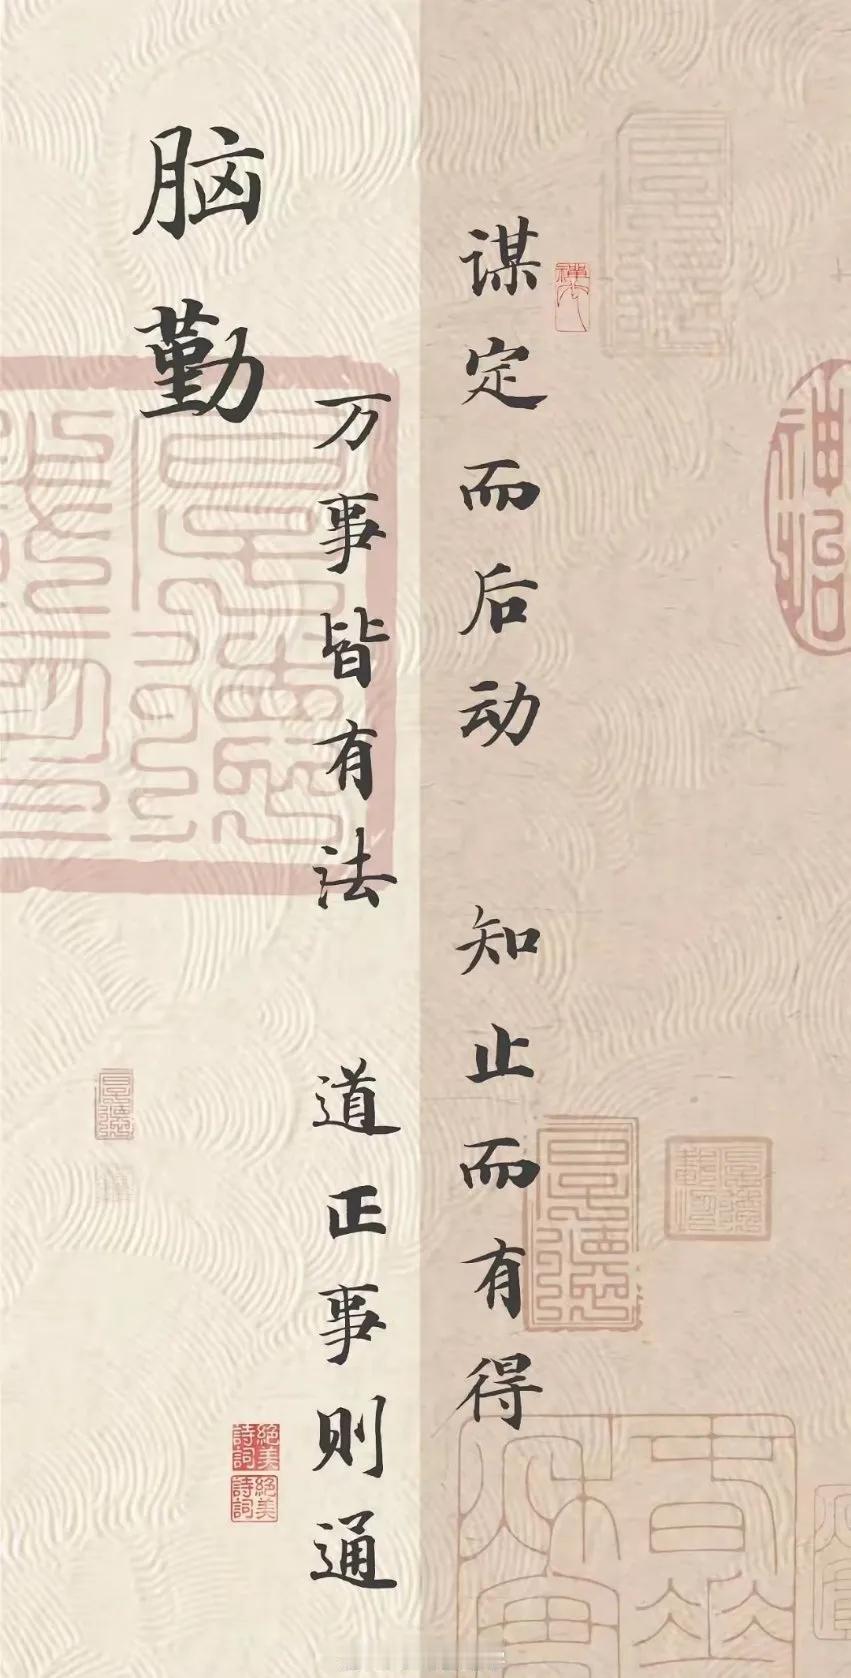 谋定而后动 知止而有得
万事皆有法 道正事则通
脑勤
絕美詩詞
絕美詩詞